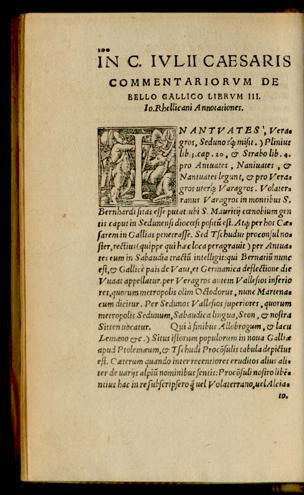 100
IN C. IVLII CAESARIS
COMMENTARIORVM DE
BELLO GALLICO LIBRVM III.
Io. Rhellicani Annotationes.
IN ANTVATES, Vera-
gros, Seduno sq́; misit. ) Plinius
lib. 3. cap. 20. & Strabo lib. 4.
pro Antuates, Naniuates, &
Nantuates legunt, & pro Vera-
gros uterq; Varagros. Volater-
ranus Varagros in montibus S.
Bernhardi sitas esse putat ubi S. Mauritij cœnobium gen
tis caput in Sedunensi diocesi positũ est. Atq; per hos Cæ-
sarem in Galliã penetrasse. Sed Tschudus procõsul no-
ster, rectius (quippe qui hæc loca peragrauit) per Antua-
tes eum in Sabaudia tractũ intelligit: qui Bernatiũ nunc
est, & Gallicè pais de Vau, et Germanica deflectione die
Vuaat appellatur. per Veragros autem Vallesios inferio
res, quorum metropolis olim Octodorus, nunc Martena-
cum dicitur. Per Sedunos Vallesios superiores, quorum
metropolis Sedunum, Sabaudica lingua, Seon, & nostra
Sitten uocatur. Qui à finibus Allobrogum, & lacu
Lemano &c. ) Situs istorum populorum in noua Galliæ
apud Ptolemæum, & Tschudi Procõsulis tabula depictus
est. Cæterum quando interrecentiores eruditos alius ali-
ter de uarijs alpiũ nominibus sentit: Procõsuli nostro libẽ-
tius hac in re subscripsero q̃ uel Volaterrano, uel Alcia-
to,